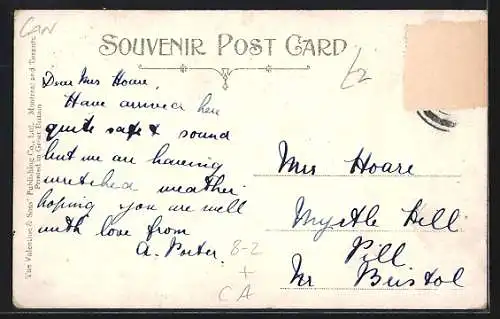 Can
SOUVENIR POST CARD
£2
The Valentine & Sons' Publishing Co., Ltd., Montreal and Toronto
Printed in Great Britain
Dear Mrs Hoare,
Have arrived here
quite safe & sound
but we are having
wretched weather
hoping you are well
with love from
A. Porter
8-2
+
CA
Mrs Hoare
Myrtle Hill
Pill
Nr Bristol